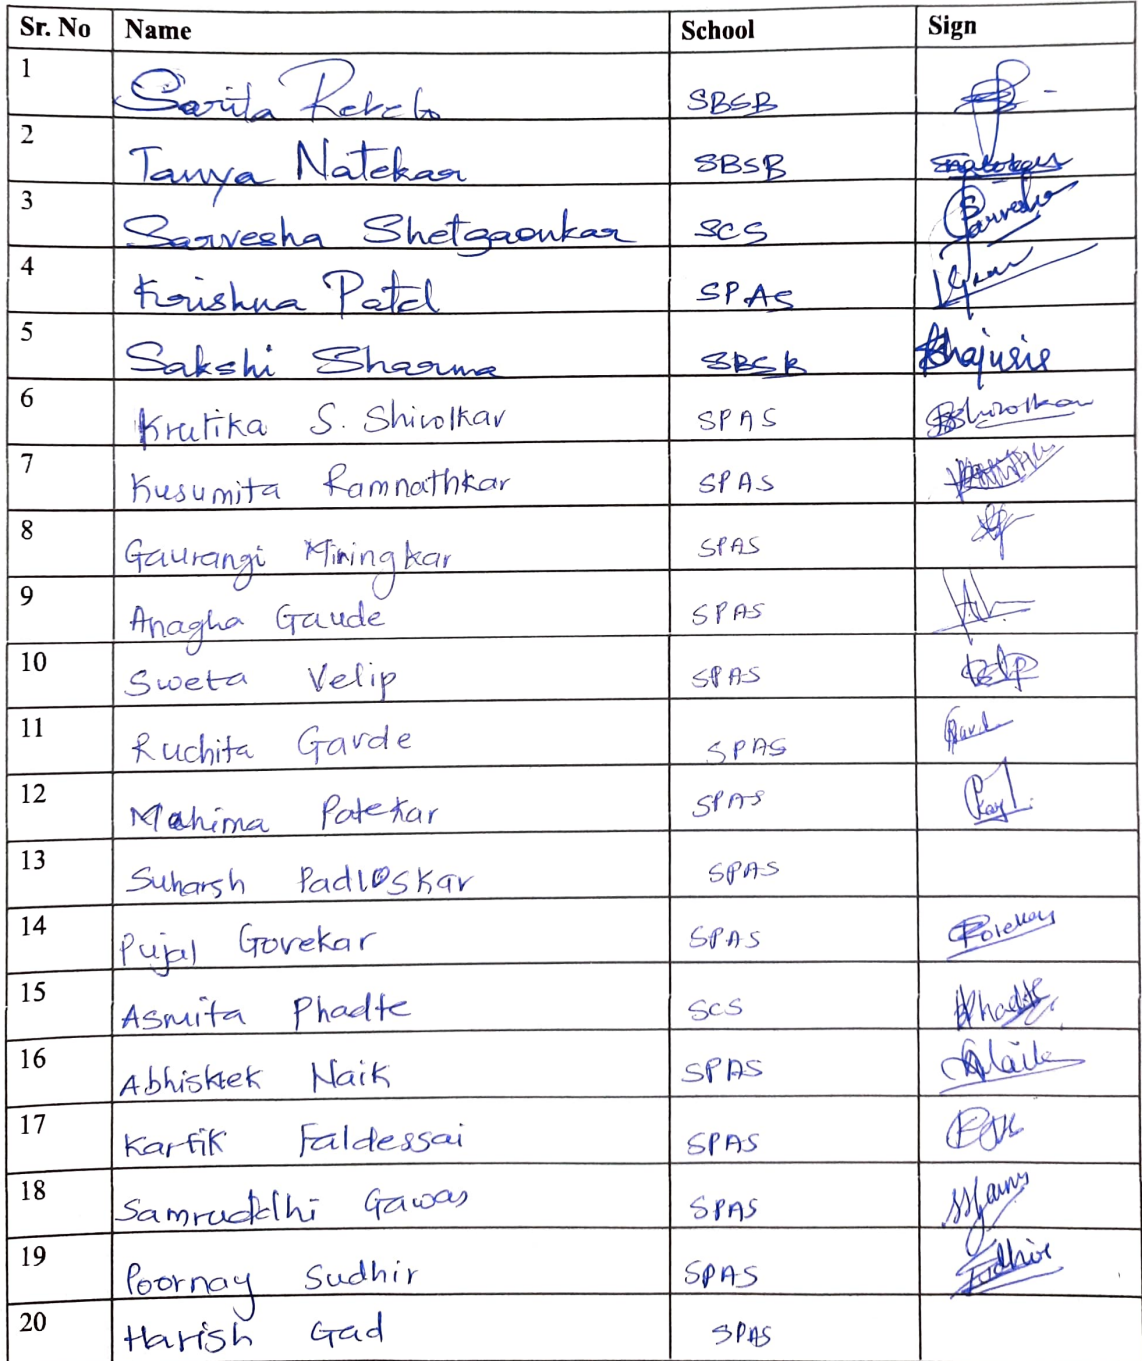 Sr. No Name School Sign
1 Sarita SBSB
2 Tanya Natekar SBSB
3 Sarvesha Shetgaonkar SCS Sarvesha
4 Krishna Patel SPAS
5 Sakshi Sharma SBSB
6 Krutika S. Shirolkar SPAS Shirolkar
7 Kusumita Ramnathkar SPAS
8 Gaurangi Miringkar SPAS
9 Anagha Gaude SPAS
10 Sweta Velip SPAS
11 Ruchita Garde SPAS
12 Mahima Patekar SPAS
13 Suharsh Padloskar SPAS
14 Pujal Govekar SPAS
15 Asmita Phadte SCS Phadte
16 Abhishek Naik SPAS Naik
17 Kartik Faldessai SPAS
18 Samruddhi Gawas SPAS
19 Poornay Sudhir SPAS Sudhir
20 Harish Gad SPAS